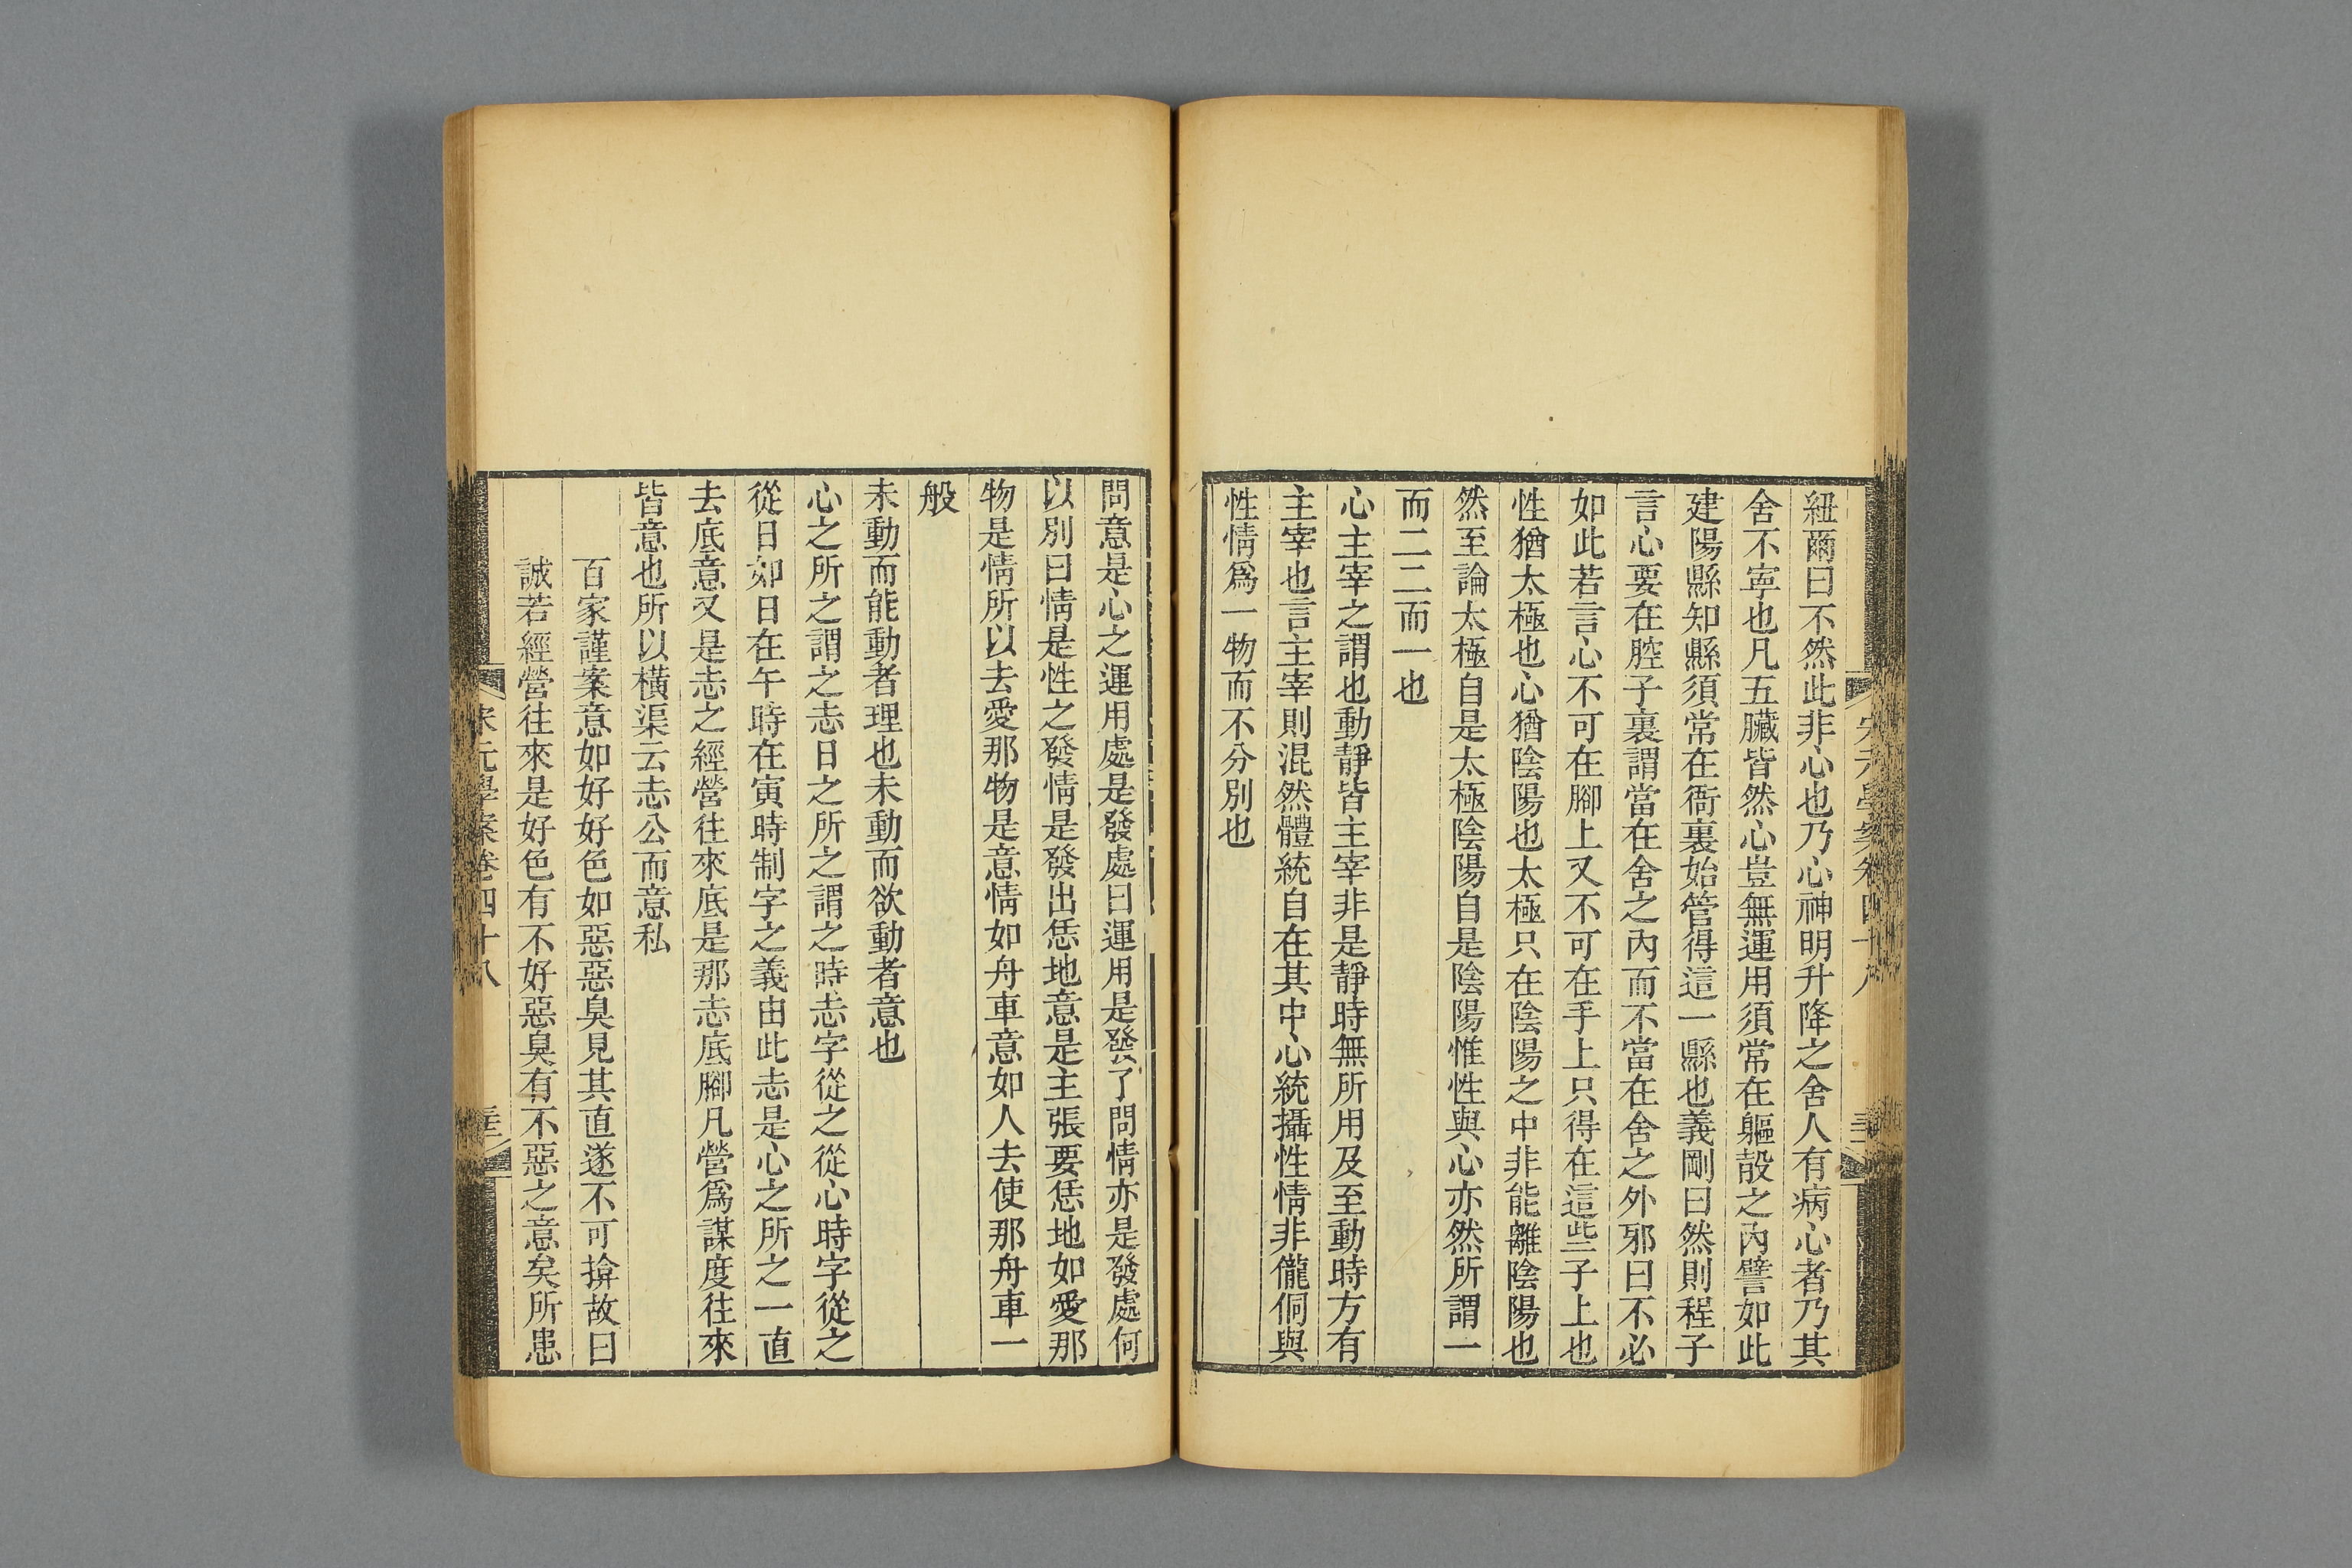 紐爾曰不然此非心也乃心神明升降之舍人有病心者乃其
舍不寧也凡五臟皆然心豈無運用須常在軀殼之內譬如此
建陽縣知縣須常在衙裏始管得這一縣也義剛曰然則程子
言心要在腔子裏謂當在舍之內而不當在舍之外邪曰不必
如此若言心不可在腳上又不可在手上只得在這些子上也
性猶太極也心猶陰陽也太極只在陰陽之中非能離陰陽也
然至論太極自是太極陰陽自是陰陽惟性與心亦然所謂一
而二二而一也
心主宰之謂也動靜皆主宰非是靜時無所用及至動時方有
主宰也言主宰則混然體統自在其中心統攝性情非儱侗與
性情爲一物而不分別也
問意是心之運用處是發處曰運用是發了問情亦是發處何
以別曰情是性之發情是發出恁地意是主張要恁地如愛那
物是情所以去愛那物是意情如舟車意如人去使那舟車一
般
未動而能動者理也未動而欲動者意也
心之所之謂之志日之所之謂之時志字從之從心時字從之
從日如日在午時在寅時制字之義由此志是心之所之一直
去底意又是志之經營往來底是那志底腳凡營爲謀度往來
皆意也所以橫渠云志公而意私
百家謹案意如好好色如惡惡臭見其直遂不可揜故曰
誠若經營往來是好色有不好惡臭有不惡之意矣所患
宋元學案卷四十八